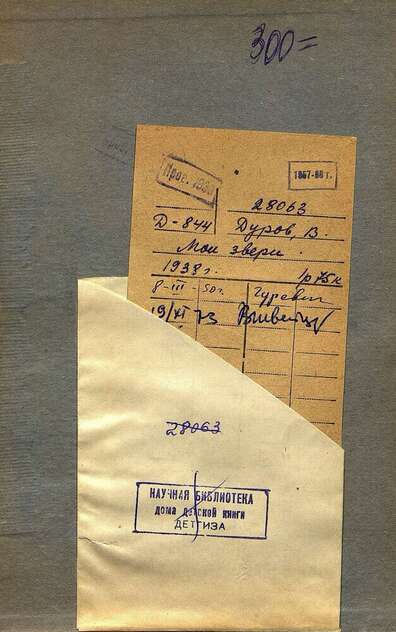 300=
1967-68 г.
28063
Д-844 Дуров, В.
Мои звери.
1938 г. 1р 75к
8-III-50г. Гуревич
19/XI 73
28063
НАУЧНАЯ БИБЛИОТЕКА
ДОМА ДЕТСКОЙ КНИГИ
ДЕТГИЗА